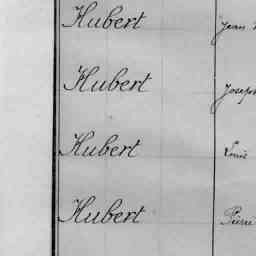 Hubert Jean
Hubert Joseph
Hubert Louis
Hubert Pierre